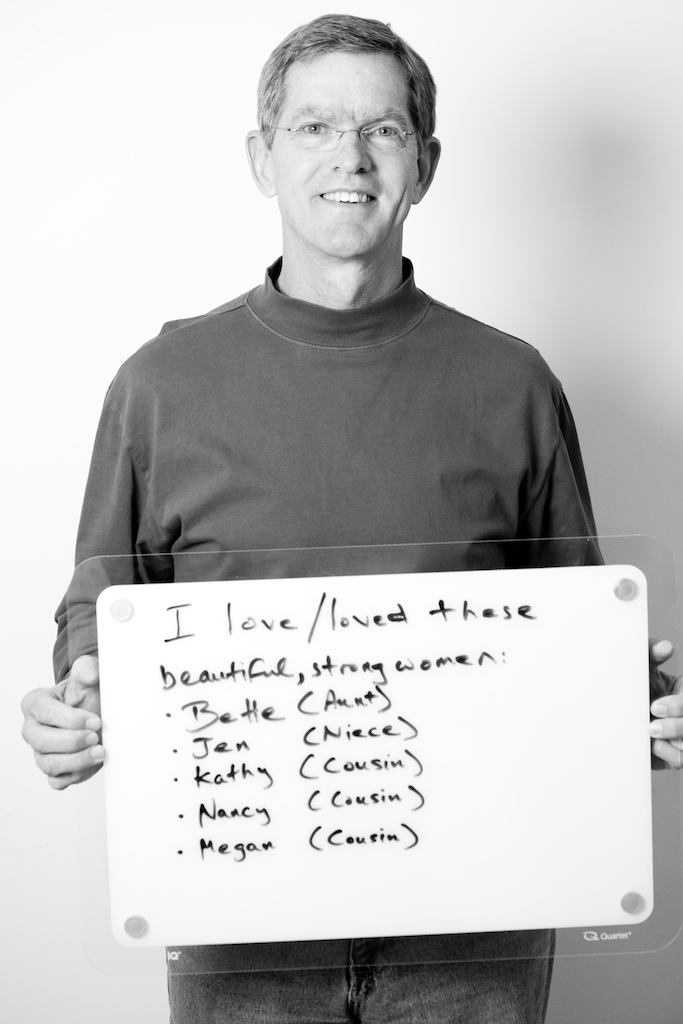 I love/loved these
beautiful, strong women:
• Bette (Aunt)
• Jen (Niece)
• Kathy (Cousin)
• Nancy (Cousin)
• Megan (Cousin)
Quartet®
IQ™